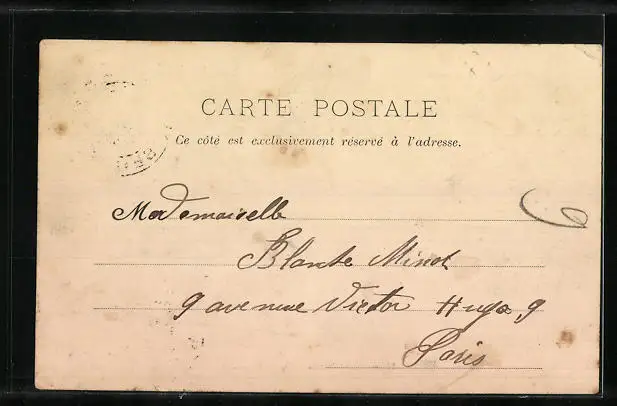 CARTE POSTALE
Ce côté est exclusivement réservé à l'adresse.
Mademoiselle
6
Blanche Minot
9 avenue Victor Hugo, 9
Paris